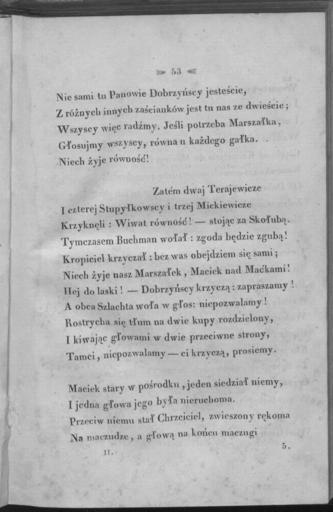 53
Nie sami tu Panowie Dobrzyńscy jesteście,
Z różnych innych zaścianków jest tu nas ze dwieście;
Wszyscy więc radźmy. Jeśli potrzeba Marszałka,
Głosujmy wszyscy, równa u każdego gałka.
Niech żyje równość!
Zatém dwaj Terajewicze
I czterej Stupyłkowscy i trzej Mickiewicze
Krzyknęli: Wiwat równość! — stojąc za Skołubą.
Tymczasem Buchman wołał: zgoda będzie zgubą!
Kropiciel krzyczał: bez was obejdziem się sami;
Niech żyje nasz Marszałek, Maciek nad Maćkami!
Hej do laski! — Dobrzyńscy krzyczą: zapraszamy!
A obca Szlachta woła w głos: niepozwalamy!
Rostrycha się tłum na dwie kupy rozdzielony,
I kiwając głowami w dwie przeciwne strony,
Tamci, niepozwalamy — ci krzyczą, prosiemy.
Maciek stary w pośrodku, jeden siedział niemy,
I jedna głowa jego była nieruchoma.
Przeciw niemu stał Chrzciciel, zwieszony rękoma
Na maczudze, a głową na końcu maczugi
II.
5.